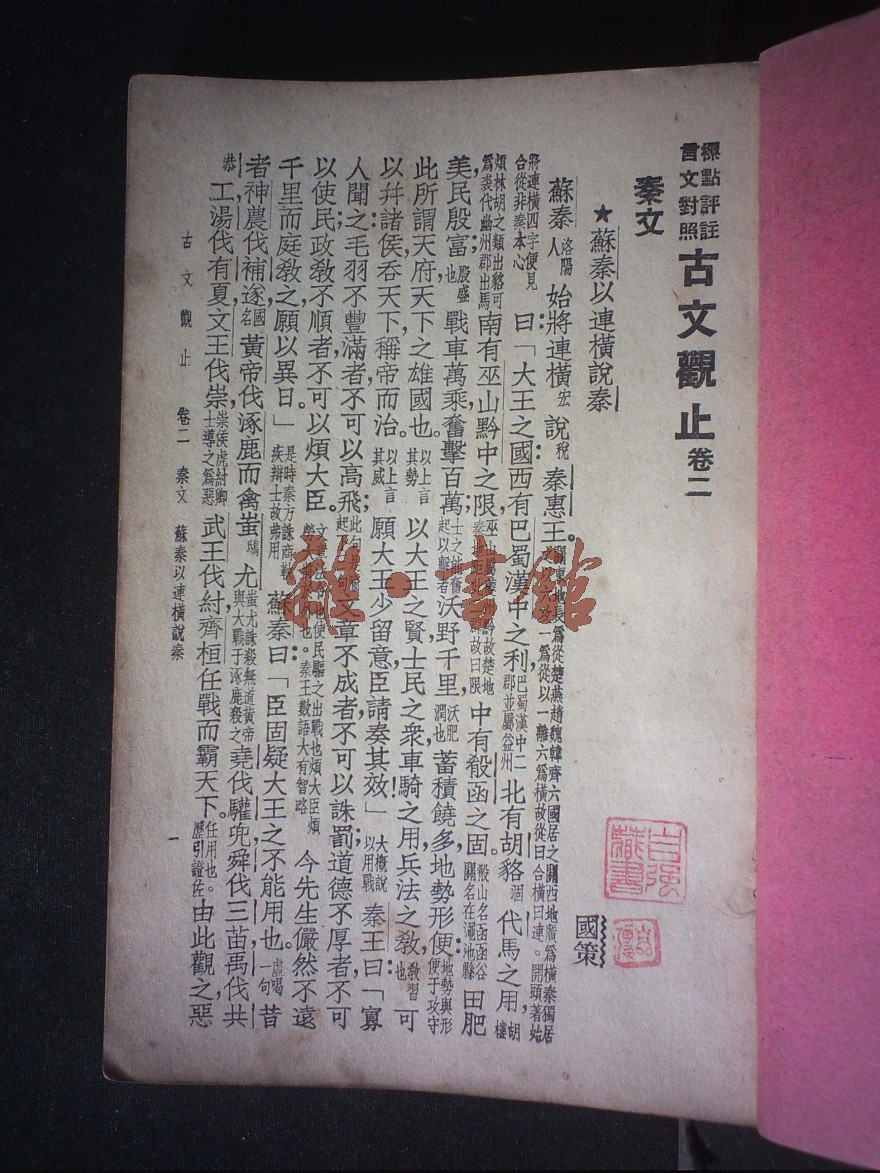 標點評註
言文對照
古文觀止 卷二
秦文
★蘇秦以連橫說秦 國策
蘇秦 洛陽人 始將連橫 宏 說 稅 秦惠王。 關東地長為從楚燕趙魏韓齊六國居之關西地廣為橫秦獨居 以一離六為橫故從曰合橫曰連。開頭著始
將連橫四字便見合從非秦本心 曰:「大王之國西有巴蜀漢中之利, 巴蜀漢中二郡並屬益州 北有胡貉 涸 代馬之用 胡樓
煩林胡之類出貉可為裘代幽州郡出馬 南有巫山黔中之限, 故曰限 中有殽函之固。 殽山名函函谷關名在澠池縣 田肥
美民殷富; 殷盛也 戰車萬乘奮擊百萬; 士之能奮起以擊者 沃野千里, 沃肥潤也 蓄積饒多,地勢形便: 地勢與形便于攻守
此所謂天府天下之雄國也。 以上言其勢 以大王之賢士民之眾車騎之用兵法之教 教習也 可
以幷諸侯吞天下,稱帝而治。 以上言其威 願大王少留意臣請奏其效!」 大概說以用戰 秦王曰:「寡
人聞之毛羽不豐滿者不可以高飛; 文章不成者不可以誅罰;道德不厚者不可
以使民政敎不順者不可以煩大臣。 使民驅之出戰也煩大臣煩 秦王數語大有智略 今先生儼然不遠
千里而庭敎之願以異日。」 是時秦方誅商鞅疾辯士故弗用 蘇秦曰:「臣固疑大王之不能用也。 虛喝一句 昔
者神農伐補遂, 國名 黃帝伐涿鹿而禽蚩 鴟 尤, 蚩尤誅殺無道黃帝與大戰于涿鹿殺之 堯伐驩兜舜伐三苗禹伐共
恭 工,湯伐有夏文王伐崇, 崇侯虎紂卿士導之為惡 武王伐紂齊桓任戰而霸天下。 任用也。歷引證佐。 由此觀之惡
古文觀止 卷二 秦文 蘇秦以連橫說秦 一
自強藏書
雜·書館